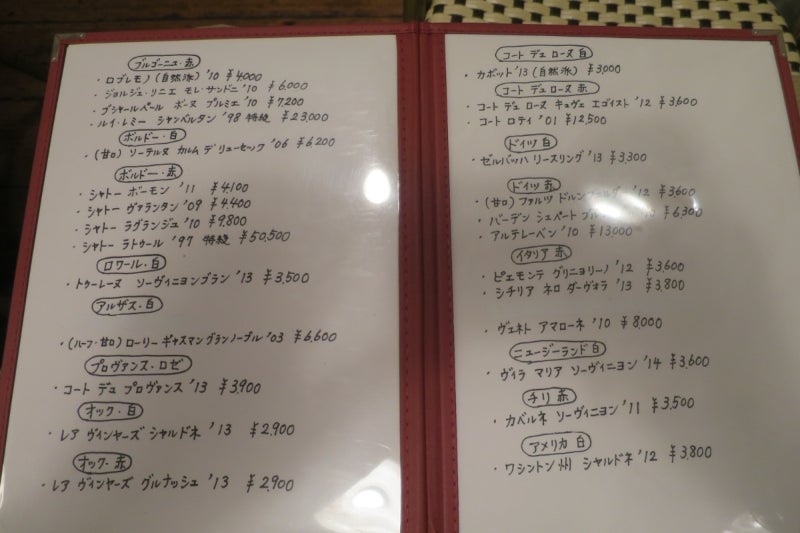 ブルゴーニュ・赤
・ロブレモノ(自然派)'10 ¥4000
・ジョルジュ・リニエ モレ・サンドニ '10 ¥6,000
・ブシャールペール ボーヌ プルミエ '10 ¥7,200
・ルイ・レミー シャンベルタン '98 特級 ¥23,000
ボルドー・白
・(甘口) ソーテルヌ カルム デ リューセック '06 ¥6200
ボルドー・赤
・シャトー ボーモン '11 ¥4100
・シャトー ヴァランタン '09 ¥4,400
・シャトー ラグランジュ '10 ¥9,800
・シャトー ラトゥール '97 特級 ¥50,500
ロワール・白
・トゥーレーヌ ソーヴィニヨンブラン '13 ¥3,500
アルザス・白
・(ハーフ・甘口) ローリー ギャスマン グランノーブル '03 ¥6,600
プロヴァンス・ロゼ
・コート デュ プロヴァンス '13 ¥3,900
オック・白
・レア ヴィンヤーズ シャルドネ '13 ¥2,900
オック・赤
・レア ヴィンヤーズ グルナッシュ '13 ¥2,900
コート デュ ローヌ 白
・カボット '13 (自然派) ¥3,000
コート デュ ローヌ 赤
・コート デュ ローヌ キュヴェ エゴイスト '12 ¥3,600
・コート ロティ '01 ¥12,500
ドイツ 白
・ゼルバッハ リースリング '13 ¥3,300
ドイツ 赤
・(甘口) ファルツ ドルン '12 ¥3,600
・バーデン シュペート ¥6,300
・アルテレーベン '10 ¥13,000
イタリア 赤
・ピエモンテ グリニョリーノ '12 ¥3,600
・シチリア ネロ ダーヴォラ '13 ¥3,800
・ヴェネト アマローネ '10 ¥8,000
ニュージーランド 白
・ヴィラ マリア ソーヴィニヨン '14 ¥3,600
チリ 赤
・カベルネ ソーヴィニヨン '11 ¥3,500
アメリカ 白
・ワシントン州 シャルドネ '12 ¥3,800